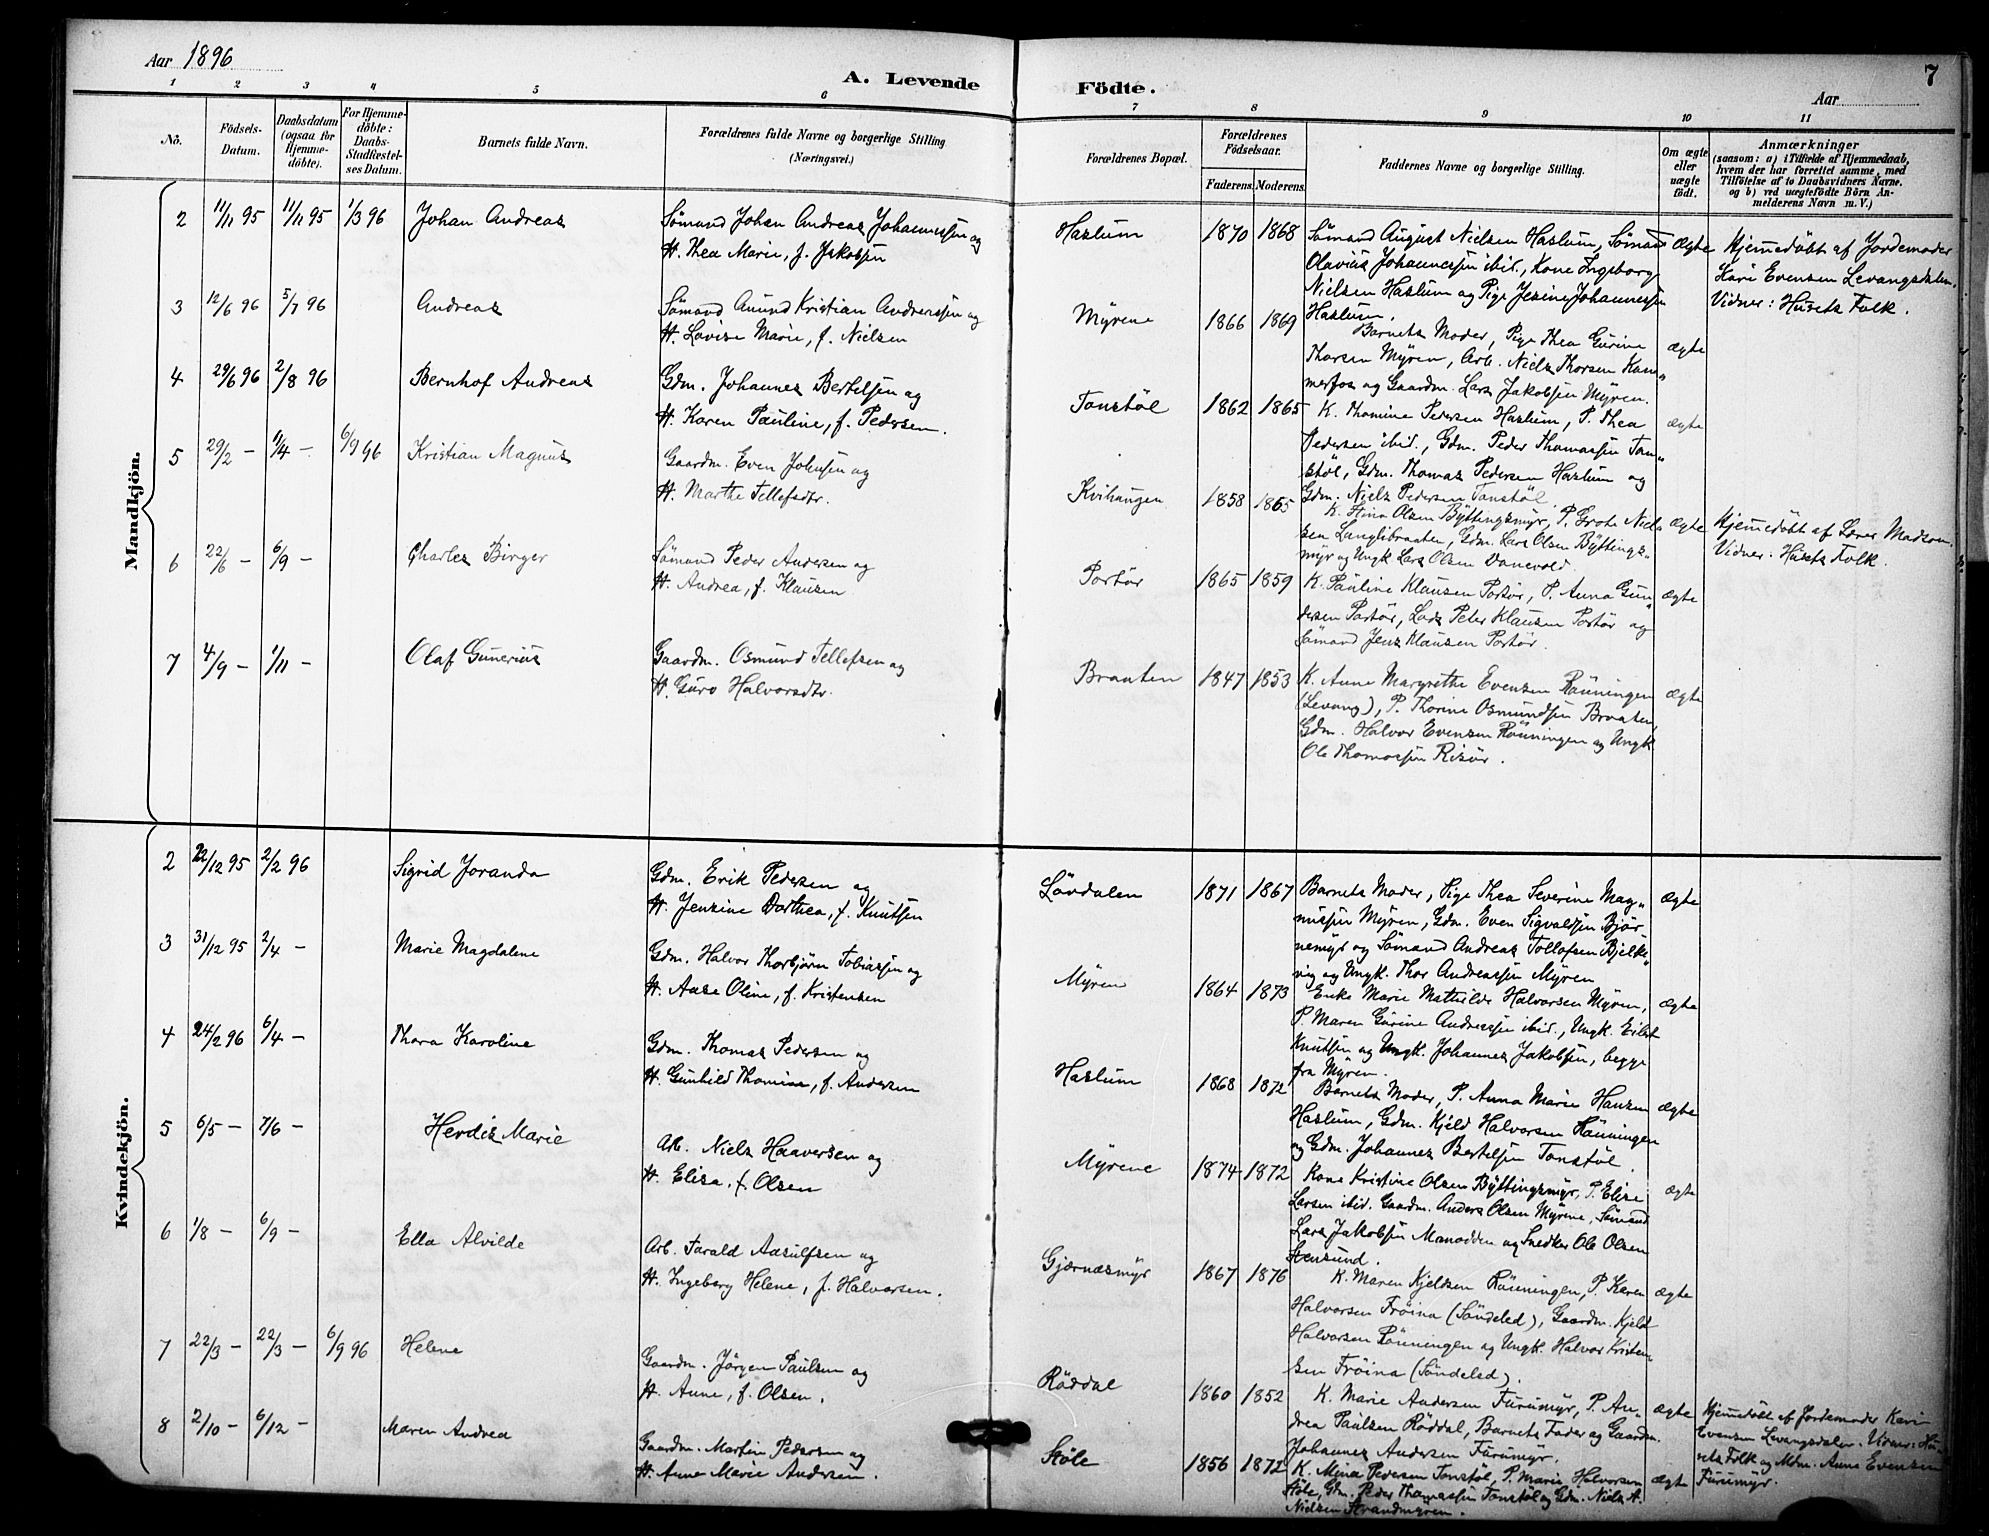 Aar 1896
A. Levende Födte.
7
Aar
1 2 3 4 5 6 7 8 9 10 11
No.
Födsels-Datum.
Daabsdatum (ogsaa for Hjemmedöbte).
For Hjemmedöbte: Daabs-Stadfæstelses Datum.
Barnets fulde Navn.
Forældrenes fulde Navne og borgerlige Stilling (Næringsvei.)
Forældrenes Bopæl.
Forældrenes Födselsaar.
Faderens. Moderens.
Faddernes Navne og borgerlige Stilling.
Om ægte eller uægte født.
Anmærkninger
(saasom: a) i Tilfælde af Hjemmedaab,
hvem der har forrettet samme, med
Tilföielse af to Daabsvidners Navne.
og b) ved uægtefödte Börn An-
melderens Navn m. V.)
Mandkjön.
2 11/11 95 11/11 95 1/3 96 Johan Andreas
Sømand Johan Andreas Johannessen og
H. Thea Marie, f. Jakobsen
Haslum 1870 1868
Sømand August Nielsen Haslum, Sømand
Olavius Johannessen ibid., Kone Ingeborg
Nielsen Haslum og Pige Jesine Johannessen
Haslum.
ægte
Hjemmedöbt af Jordemoder
Kari Evensen Levangsdalen.
Vidner: Husets Folk.
3 12/6 96 5/7 96 Andreas
Sømand Anund Kristian Andreassen og
H. Lovise Marie, f. Nielsen
Myrene 1866 1869
Barnets Moder, Pige Thea Gurine
Thorsen Myren, Arb. Niels Thorsen Kam„
merfos og Gaardm. Lars Jakobsen Myren.
ægte
4 29/6 96 2/8 96 Bernhof Andreas
Gdm. Johannes Bertelsen og
H. Karen Pauline, f. Pedersen.
Tonstöl 1862 1865
K. Thomine Pedersen Haslum, P. Thea
Pedersen ibid., Gdm. Peder Thomassen Ton„
stöl, Gdm. Thomas Pedersen Haslum og
Gdm. Niels Pedersen Tonstöl
ægte
5 29/2 – 1/4 – 6/9 96 Kristian Magnus
Gaardm. Even Johnsen og
H. Marthe Tellefsdtr.
Kvihaugen 1858 1865
K. Stina Olsen Byttingsmyr, P. Grete Niel„
sen Langlibraaten, Gdm. Lars Olsen Byttings„
myr og Ungk Lars Olsen Danevold.
ægte
Hjemmedöbt af Lærer Madsen.
Vidner: Husets Folk.
6 22/6 – 6/9 – Charles Birger
Sømand Peder Andersen og
H. Andrea, f. Klausen
Portør 1865 1859
K. Pauline Klausen Portør, P. Anna Gun„
dersen Portør, Lods Peter Klausen Portør og
Sømand Jens Klausen Portør.
ægte
7 4/9 – 1/11 – Olaf Gunerius
Gaardm. Osmund Tellefsen og
H. Guro Halvorsdtr.
Braaten 1847 1853
K. Anne Margrethe Evensen Rønningen
(Levang), P. Thorine Osmundsen Braaten,
Gdm. Halvor Evensen Rønningen og Ungk
Ole Thomassen Risør.
ægte
Kvindekjön.
2 22/12 95 2/2 96 Sigrid Joranda
Gdm. Erik Pedersen og
H. Jensine Dorthea, f. Knutsen
Lövdalen 1871 1867
Barnets Moder, Pige Thea Severine Mag„
nussen Myren, Gdm. Even Sigvaldsen Bjør„
nemyr og Sømand Andreas Tollofsen Bjelke„
vig og Ungk. Thor Andreassen Myren
ægte
3 31/12 95 2/4 – Marie Magdalene
Gdm. Halvor Thorbjørn Tobiassen og
H. Aase Oline, f. Kristensen
Myren 1864 1873
Enke Marie Mathilde Halvorsen Myren,
P. Maren Gurine Andreassen ibid., Ungk. Eilert
Knutsen og Ungk. Johannes Jakobsen, begge
fra Myren.
ægte
4 24/2 96 6/4 – Thora Karoline
Gdm. Thomas Pedersen og
H. Gunhild Thomine, f. Andersen
Haslum 1868 1872
Barnets Moder, P. Anna Marie Hansen
Haslum, Gdm. Kjeld Halvorsen Rønningen
og Gdm. Johannes Bertelsen Tonstöl.
ægte
5 6/5 – 7/6 – Herdis Marie
Arb. Niels Haaversen og
H. Elise, f. Olsen
Myrene 1874 1872
Kone Kristine Olsen Byttingsmyr, P. Elise
Larsen ibid. Gaardm. Anders Olsen Myrene, Sømand
Lars Jakobsen Manodden og Snedker Ole Olsen
Stensund.
ægte
6 1/8 – 6/9 – Ella Alvilde
Arb. Tarald Aasulfsen og
H. Ingeborg Helene, f. Halvorsen.
Gjernæsmyr 1867 1876
K. Maren Kjeldsen Rønningen, P. Karen
Halvorsen Frøina (Søndeled), Gaardm. Kjeld
Halvorsen Rønningen og Ungk. Halvor Kristen„
sen Frøina (Søndeled).
ægte
7 22/3 – 22/3 – 6/9 96 Helene
Gaardm. Jørgen Paulsen og
H. Anne, f. Olsen.
Röddal 1860 1852
K. Marie Andersen Furumyr, P. An„
drea Paulsen Röddal, Barnets Fader og Gaardm.
Johannes Andersen Furumyr.
ægte
Hjemmedöbt af Jordemoder Kari
Evensen Levangsdalen. Vidner: Hu„
sets Folk og Mdm. Anne Evensen
Furumyr.
8 2/10 – 6/12 – Maren Andrea
Gaardm. Martin Pedersen og
H. Anne Marie Andersen.
Støle 1856 1872
K. Mina Pedersen Tonstöl, P. Marie Halvorsen
Støle, Gdm. Peder Thomassen Tonstöl og Gdm. Niels A.
Nielsen Strandmyren.
ægte